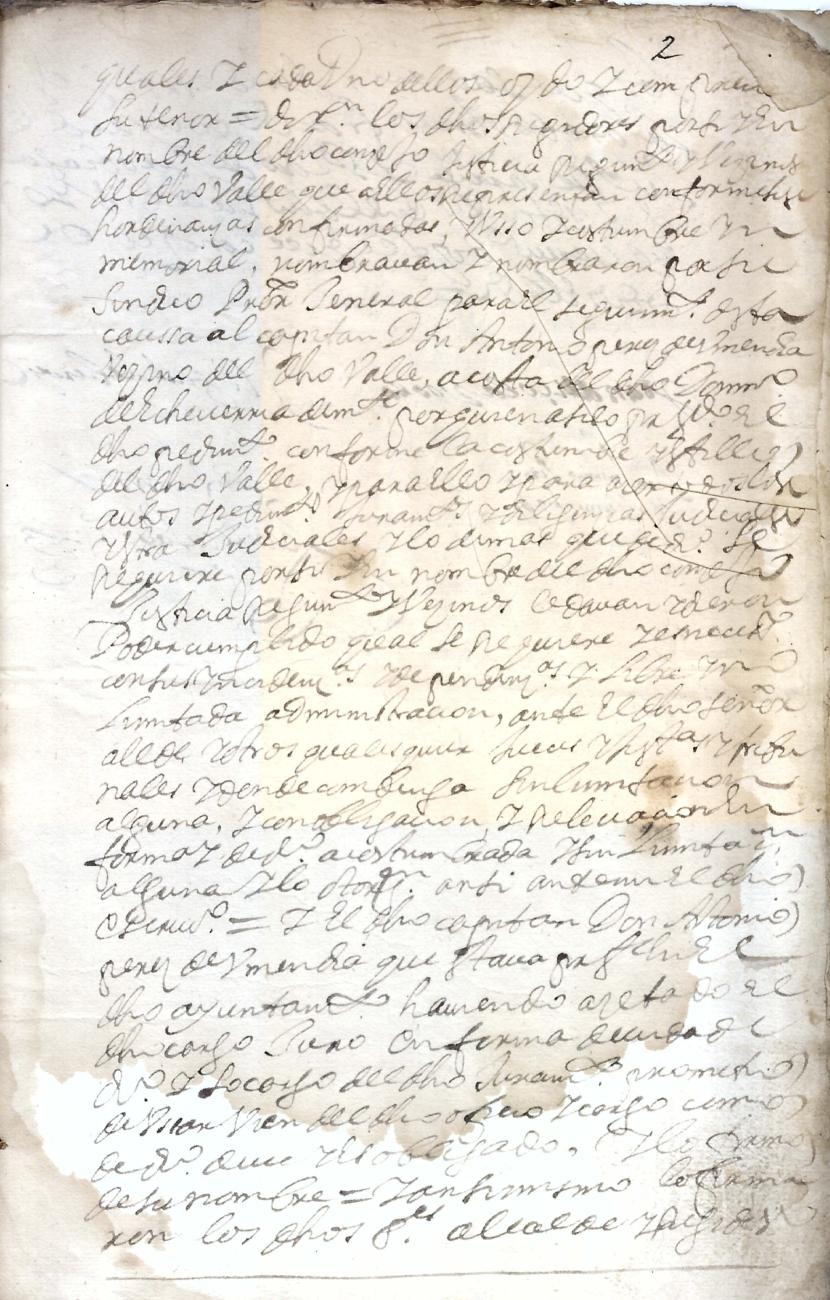 2
quales y cada Uno dellos oydo y compren
su tenor = dixn. los dhos regidores por si y en
nombre del dho concejo Justicia regimto. y Vezinos
del dho Valle que a ellos representan conforme sus
hordenanzas confirmadas, Usso y costumbre yn
memorial, nombravan y nombraron por su
Sindico Pror. General para el seguimto. desta
caussa al capitan Don Antonio perez de Ymendia
Vezino del dho Valle, a costa del dho Domingo
de Echeverria
dho pedimto. conforme la costumbre y estillo
del dho Valle, y para ello y para todos los
autos y pedimtos. Juramtos. y diligencias Judiciales
y extra Judiciales y lo demas que de dro. se
requiere por si y en nombre del dho concejo
Justicia Regimto. y Vezinos le davan y dieron
Poder cumplido qual se requiere y es necesº.
con sus yncidencias. y dependencias. y Libre yn
limitada administracion, ante El dho señor
alcde. y otros qualesquier Jueces y Justas. y tribu
nales y donde combenga sin limitacion
alguna, y con obligacion, y relevacion en
forma y de dro. acostumbrada y sin limitacn.
alguna y lo otorgn. ansi ante mi El dho
escrivo. = y El dho capitan Don Antonio
perez de Ymendia que estava presste. en El
dho ayuntamto. haviendo azetado el
dho cargo Juro en forma devida de
dro. y so cargo del dho Juramto. prometio
de Usar Vien del dho oficio y cargo como
de dro. deve y es obligado, y lo firmo
de su nombre = y ansimismo lo firma
ron los dhos ss.res alcalde y regidores